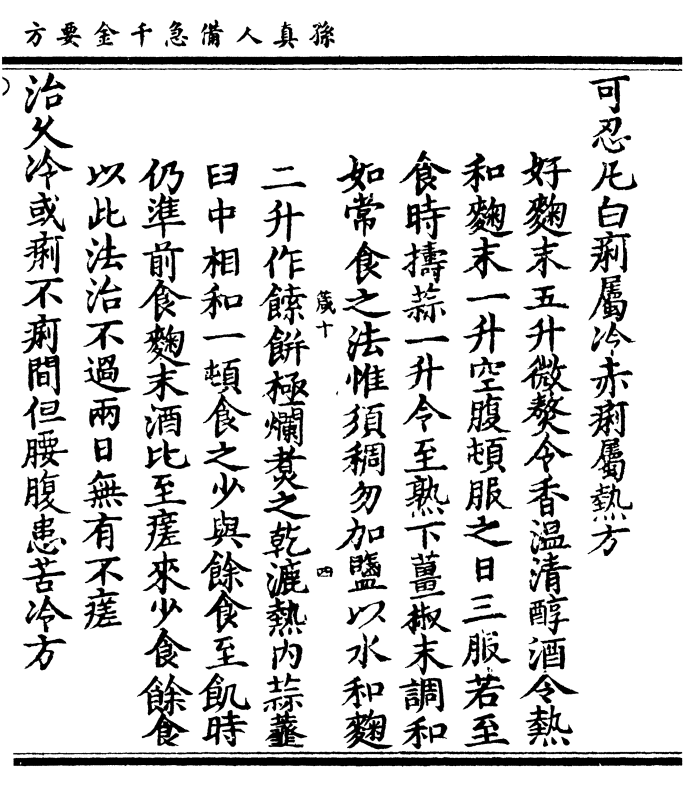 孫真人備急千金要方
可忍凡白痢屬冷赤痢屬熱方
好麴末五升微熬令香温清醇酒令熱
和麴末一升空腹頓服之日三服若至
食時擣蒜一升令至熟下薑椒末調和
如常食之法惟須稠勿加鹽以水和麴
葴十
四
二升作餗餅極爛煮之乾漉熱内蒜虀
臼中相和一頓食之少與餘食至飢時
仍準前食麴末酒比至瘥來少食餘食
以此法治不過兩日無有不瘥
治久冷或痢不痢間但腰腹患苦冷方